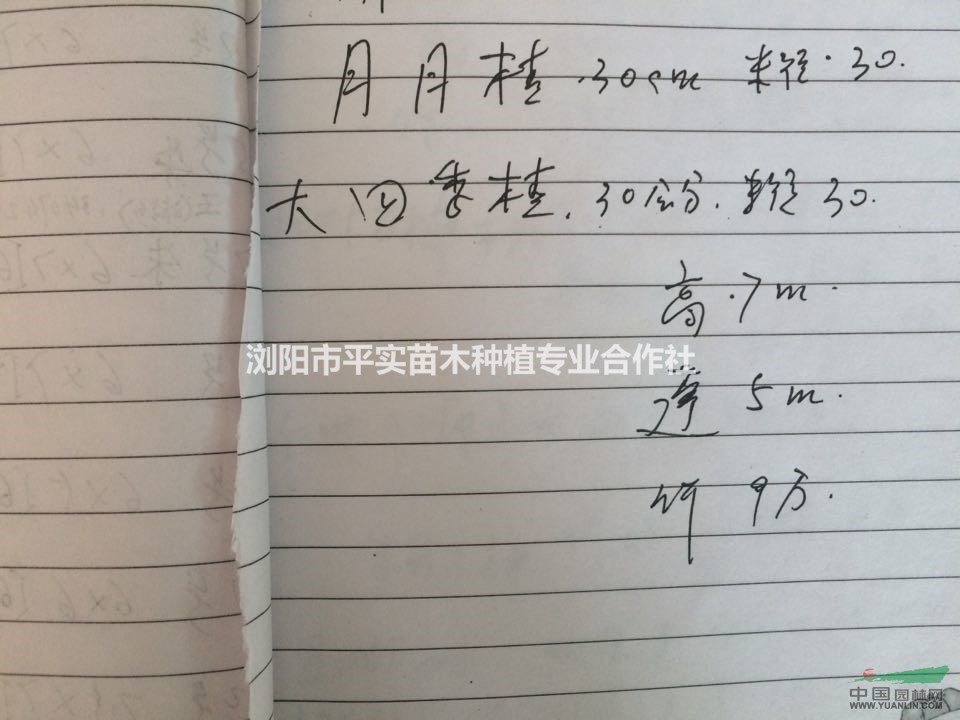 月月桂.30cm 米径.30.
大四季桂.30公分.米径30.
高.7m.
浏阳市平实苗木种植专业合作社
蓬 5m.
9万.
中国园林网
WWW.YUANLIN.COM